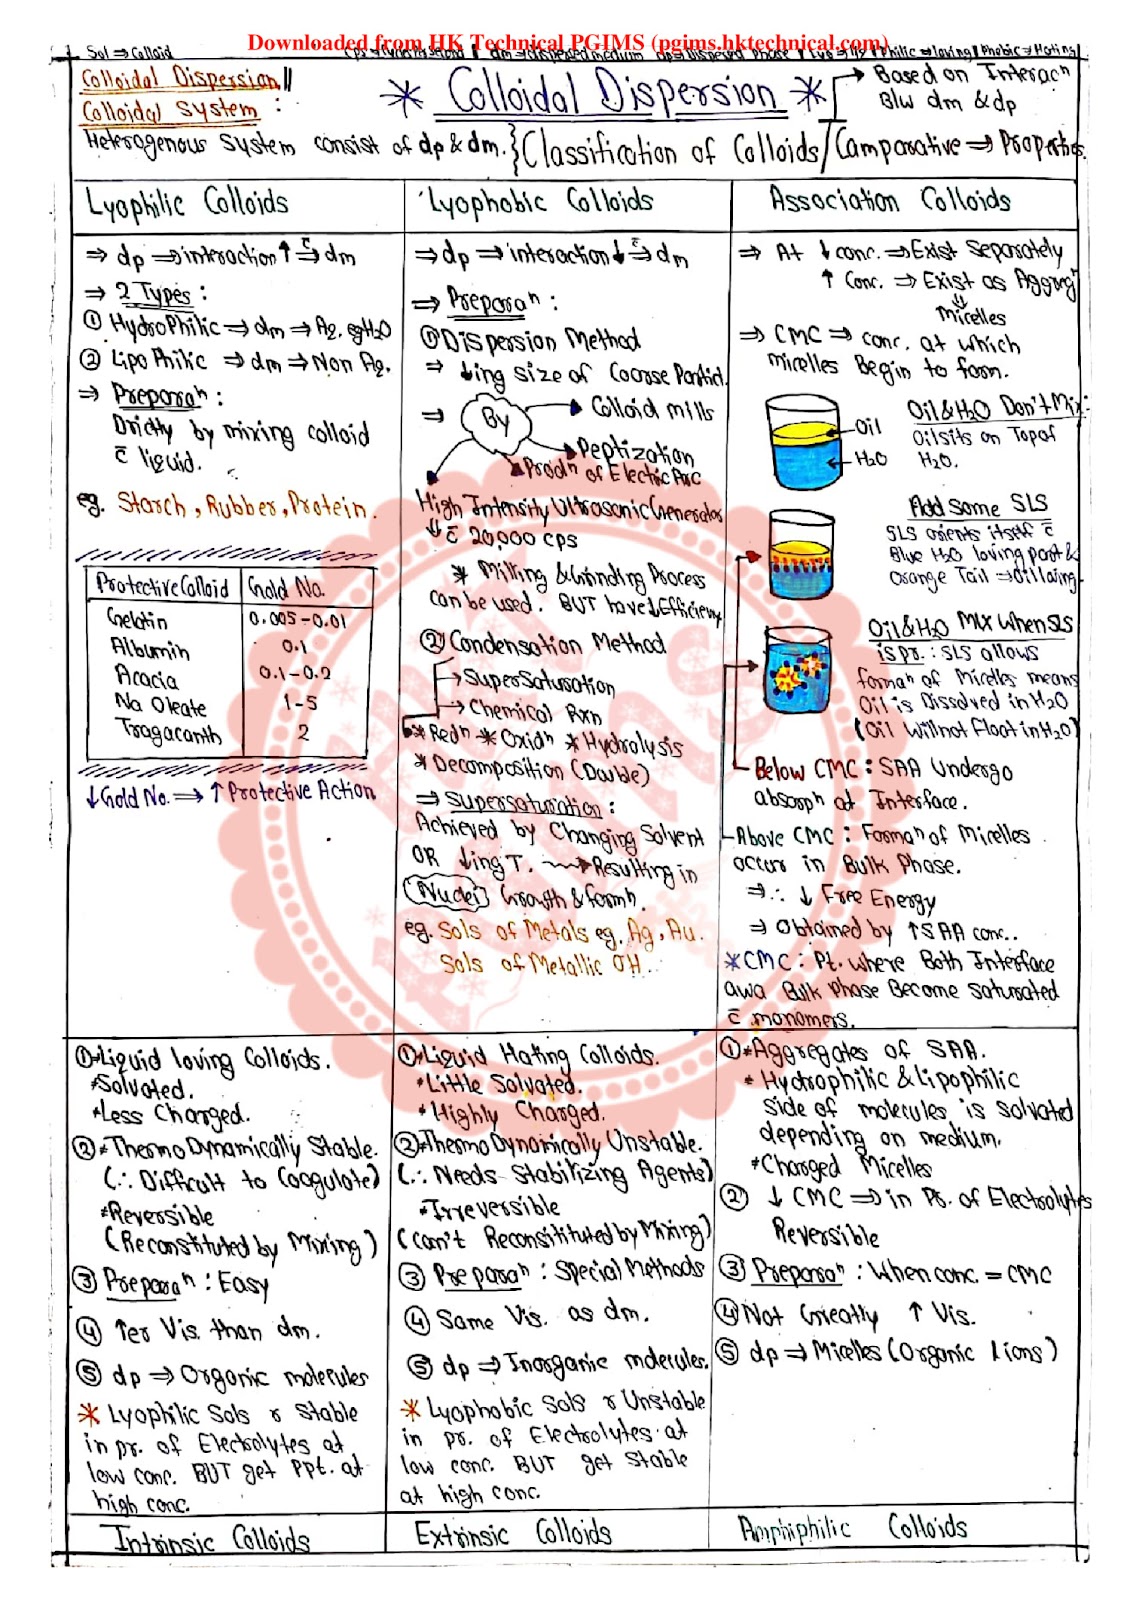 Downloaded from HK Technical PGIMS (pgims.hktechnical.com)
Sol ⇒ Colloid
Philic ⇒ loving | Phobic ⇒ Hating
Colloidal Dispersion ||
Colloidal System :
* Colloidal Dispersion *
Based on Interacⁿ
Blw dm & dp
Heterogenous System consist of dp & dm. } Classification of Colloids / Comparative ⇒ Properties
Lyophilic Colloids
⇒ dp ⇒ interaction ↑ c̄ dm
⇒ 2 Types :
① HydroPhilic ⇒ dm ⇒ Aq. eg H₂O
② LipoPhilic ⇒ dm ⇒ Non Aq.
⇒ Preparaⁿ :
Dirictly by mixing colloid
c̄ liquid.
eg. Starch, Rubber, Protein.
Protective Colloid | Gold No.
Gelatin 0.005-0.01
Albumin 0.1
Acacia 0.1-0.2
Na Oleate 1-5
Tragacanth 2
↓Gold No. ⇒ ↑ Protective Action
Lyophobic Colloids
⇒ dp ⇒ interaction ↓ c̄ dm
⇒ Preparaⁿ :
① Dispersion Method
⇒ ↓ing size of Coarse Particl.
⇒ By
Colloid mills
Peptization
Prodⁿ of Electric Arc
High Intensity Ultrasonic Generator
c̄ 20,000 cps
* Milling & Grinding Process
can be used. BUT have ↓ Efficiency
② Condensation Method
→ SuperSaturation
→ Chemical Rxn
* Redⁿ * Oxidⁿ * Hydrolysis
* Decomposition (Double)
⇒ Supersaturation :
Achieved by Changing Solvent
OR ↓ing T. → Resulting in
(Nuclei) Growth & formⁿ.
eg. Sols of Metals eg. Ag, Au.
Sols of Metallic OH.
Association Colloids
⇒ At ↓ conc. ⇒ Exist Separately
↑ Conc. ⇒ Exist as Aggreg
⇓
Micelles
⇒ CMC ⇒ conc. at which
micelles Begin to form.
Oil
H₂O
Oil & H₂O Don't Mix :
Oil sits on Top of
H₂O.
Add Some SLS
SLS orients itself c̄
Blue H₂O loving part &
Orange Tail ⇒ Oil loving
Oil & H₂O Mix When SLS
is pr. : SLS allows
formaⁿ of Micelles means
Oil is Dissolved in H₂O
(Oil Will not Float in H₂O)
Below CMC : SAA Undergo
absorpⁿ at Interface.
Above CMC : Formaⁿ of Micelles
occur in Bulk Phase.
⇒ ∴ ↓ Free Energy
⇒ Obtained by ↑ SAA conc..
* CMC : Pt. where Both Interface
awa Bulk Phase Become saturated
c̄ monomers.
① * Liquid loving Colloids.
* Solvated.
* Less Charged.
② * ThermoDynamically Stable.
(∴ Difficult to Coagulate)
* Reversible
(Reconstituted by Mixing)
③ Preparaⁿ : Easy
④ ↑er Vis. than dm.
⑤ dp ⇒ Organic molecules
* Lyophilic Sols r Stable
in pr. of Electrolytes at
low conc. BUT get PPt. at
high conc.
① * Liquid Hating Colloids.
* Little Solvated.
* Highly Charged.
② * ThermoDynamically Unstable.
(∴ Needs Stabilizing Agents)
* Irreversible
(Can't Reconsitituted by Mixing)
③ Preparaⁿ : Special Methods
④ Same Vis. as dm.
⑤ dp ⇒ Inorganic molecules.
* Lyophobic Sols r Unstable
in pr. of Electrolytes at
low conc. BUT get Stable
at high conc.
① * Aggregates of SAA.
* Hydrophilic & Lipophilic
side of molecules is solvated
depending on medium.
* Charged Micelles
② ↓ CMC ⇒ in Pr. of Electrolytes
Reversible
③ Preparaⁿ : When conc. = CMC
④ Not Greatly ↑ Vis.
⑤ dp ⇒ Micelles (Organic Iions)
Intrinsic Colloids
Extrinsic Colloids
Amphiphilic Colloids